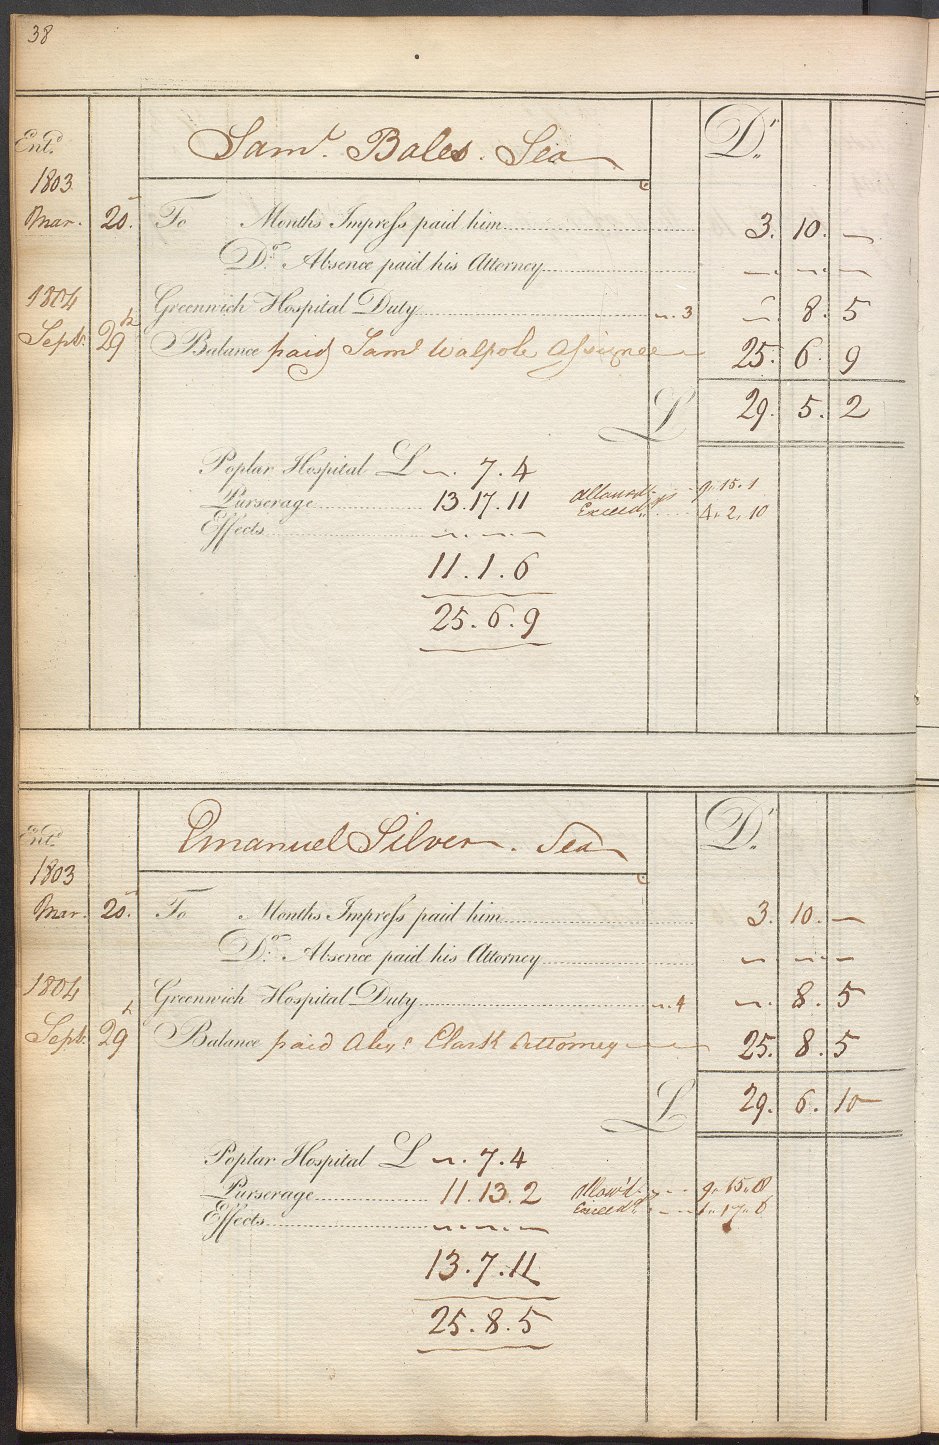 38
Ent.d
Sam.l Bales. Sea
D.r
1803
Mar. 25. To Months Impress paid him 3. 10. —
D.o Absence paid his Attorney —. —. —
1804
Greenwich Hospital Duty ". 3 ". 8. 5
Sept. 29th Balance paid Sam.l Walpole Assignee 25. 6. 9
£ 29. 5. 2
Poplar Hospital £ ". 7. 4
Purserage 13. 17. 11 Allowed 9. 15. 1
Exceed.g 4. 2. 10
Effects —. —. —
11. 1. 6
25. 6. 9
Ent.d
Emanuel Silver. Sea
D.r
1803
Mar. 25. To Months Impress paid him 3. 10. —
D.o Absence paid his Attorney —. —. —
1804
Greenwich Hospital Duty ". 4 ". 8. 5
Sept. 29th Balance paid Alex.r Clark Attorney 25. 8. 5
£ 29. 6. 10
Poplar Hospital £ ". 7. 4
Purserage 11. 13. 2 Allow'd 9. 15. 8
Exceed.g 1. 17. 6
Effects —. —. —
13. 7. 11
25. 8. 5